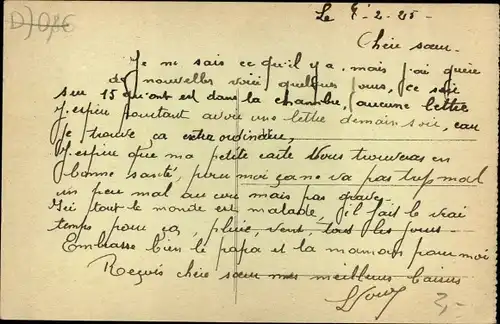 D) OBE
Le 7-2-25-
Chère sœur.
Je ne sais ce qu'il y a, mais j'ai guère
de nouvelles voici quelques jours, ce soir
sur 15 qu'on est dans la chambre, aucune lettre
J'espère pourtant avoir une lettre demain soir, car
je trouve ça extraordinaire,
J'espère que ma petite carte vous trouveras en
bonne santé, pour moi ça ne va pas trop mal
un peu mal au cou mais pas grave.
Ici tout le monde est malade, il fait le vrai
temps pour ça, pluie, vent, tous les jours
Embrasse bien le papa et la maman pour moi
Reçois chère sœur mes meilleurs baisers
3,-